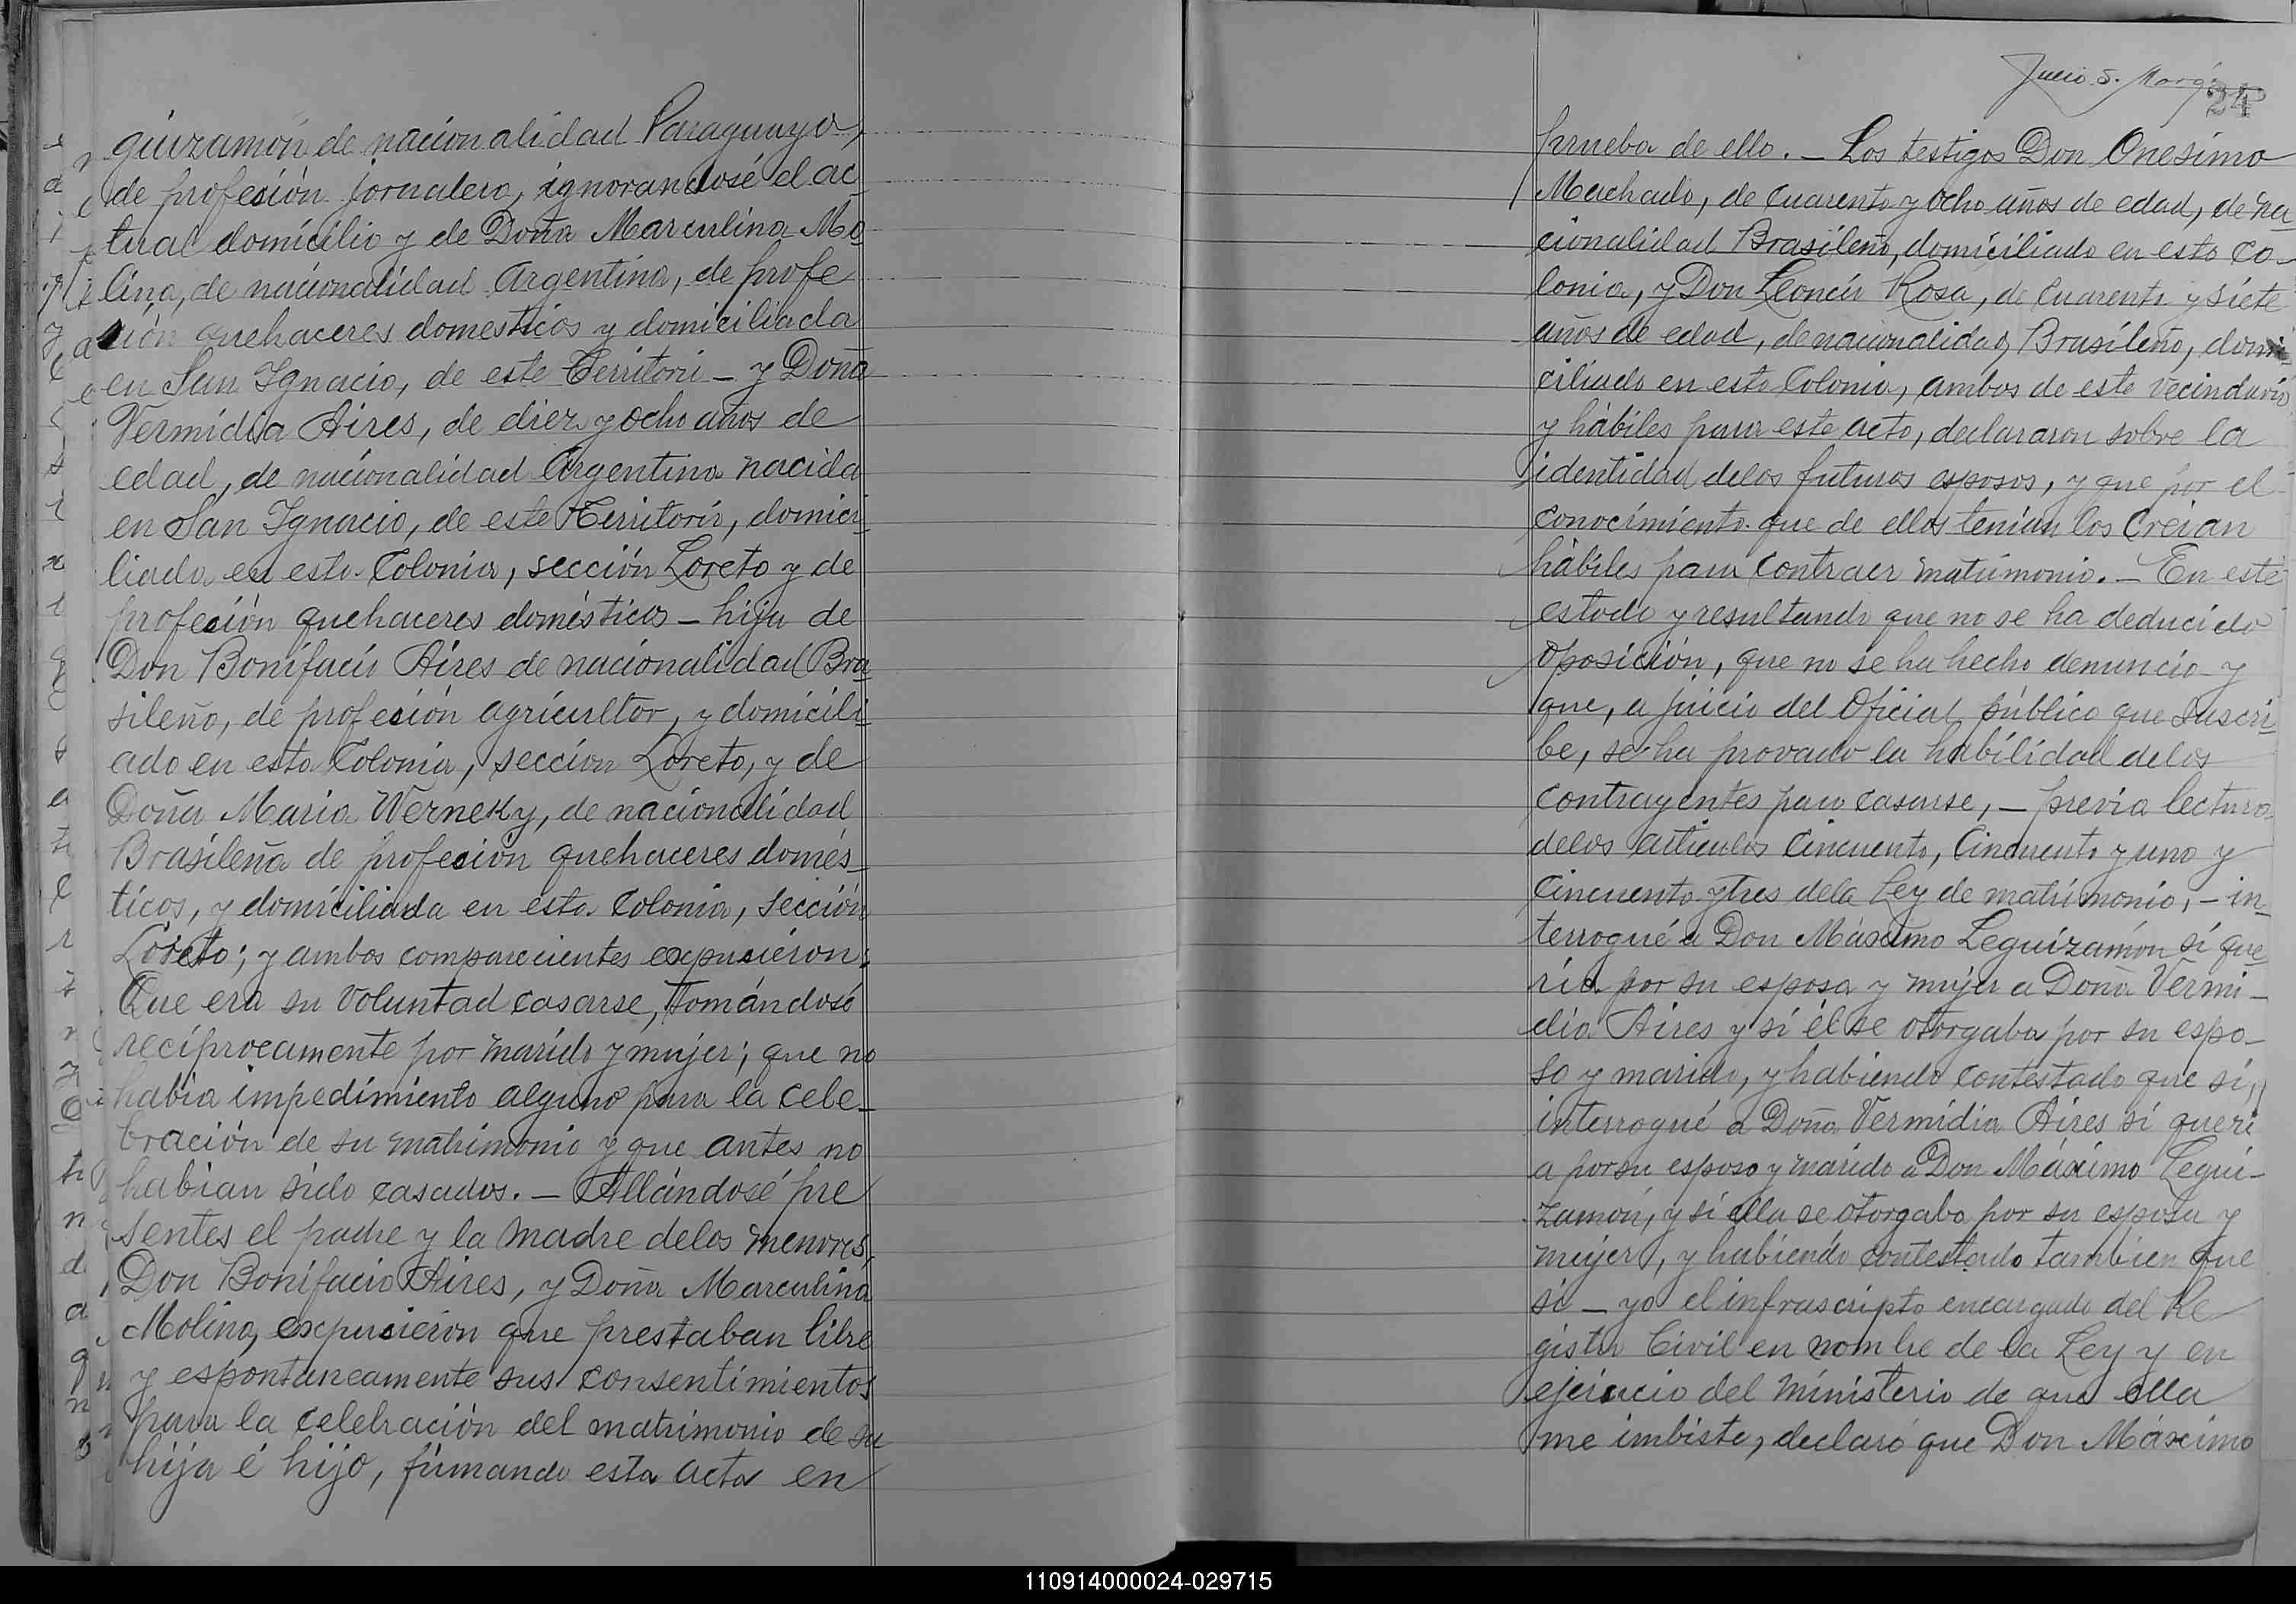 guizamón de nacionalidad Paraguaya,
de profesión jornalero, ignorandosé el ac-
tual domicilio y de Doña Marculina Mo-
lina, de nacionalidad Argentina, de profe
sión quehaceres domesticos y domiciliada
en San Ignacio, de este Territori - y Doña
Vermidia Aires, de diez y ocho años de
edad, de nacionalidad Argentina nacida
en San Ignacio, de este Territorio, domici-
liada en esta Colonia, sección Loreto y de
profesión quehaceres domésticos - hija de
Don Bonifacio Aires de nacionalidad Bra-
sileño, de profesión agricultor, y domicili-
ado en esta Colonia, sección Loreto, y de
Doña Maria Werneky, de nacionalidad
Brasileña de profesion quehaceres domés-
ticos, y domiciliada en esta Colonia, sección
Loreto; y ambos comparecientes expusieron:
Que era su voluntad casarse, tomándosé
recíprocamente por marido y mujer; que no
habia impedimiento alguno para la cele-
bración de su matrimonio y que antes no
habian sido casados. - Allándosé pre
sentes el padre y la madre delos menores,
Don Bonifacio Aires, y Doña Marculina
Molina, expusieron que prestaban libre
y espontaneamente sus consentimientos
para la celebración del matrimonio de su
hija é hijo, firmando esta acta en
24
prueba de ello. - Los testigos Don Onesimo
Machado, de cuarenta y ocho años de edad, de na-
cionalidad Brasileño, domiciliado en esta Co-
lonia, y Don Leoncio Rosa, de cuarenta y siete
años de edad, de nacionalidad Brasileño, domi-
ciliado en esta Colonia, ambos de este vecindario
y hábiles para este acto, declararon sobre la
identidad delos futuros esposos, y que por el
conocimiento que de ellos tenian los creian
hábiles para contraer matrimonio. - En este
estado y resultando que no se ha deducido
oposición, que no se ha hecho denuncia y
que, a juicio del Oficial público que suscri-
be, se ha provado la habilidad delos
contrayentes para casarse, - previa lectura
delos articulos cincuenta, cincuenta y uno y
cincuenta y tres dela Ley de matrimonio, - in-
terrogué a Don Máximo Leguizamón si que-
ría por su esposa y mujer a Doña Vermi-
dia Aires y si él se otorgaba por su espo-
so y marido, y habiendo contestado que si,
interrogué a Doña Vermidia Aires si queri
a por su esposo y marido a Don Máximo Legui-
zamón, y si ella se otorgaba por su esposa y
mujer, y habiendo contestado tambien que
si - yo el infrascripto encargado del Re
gistro Civil en nombre de la Ley y en
ejercicio del ministerio de que ella
me imbiste, declaró que Don Máximo
110914000024-029715